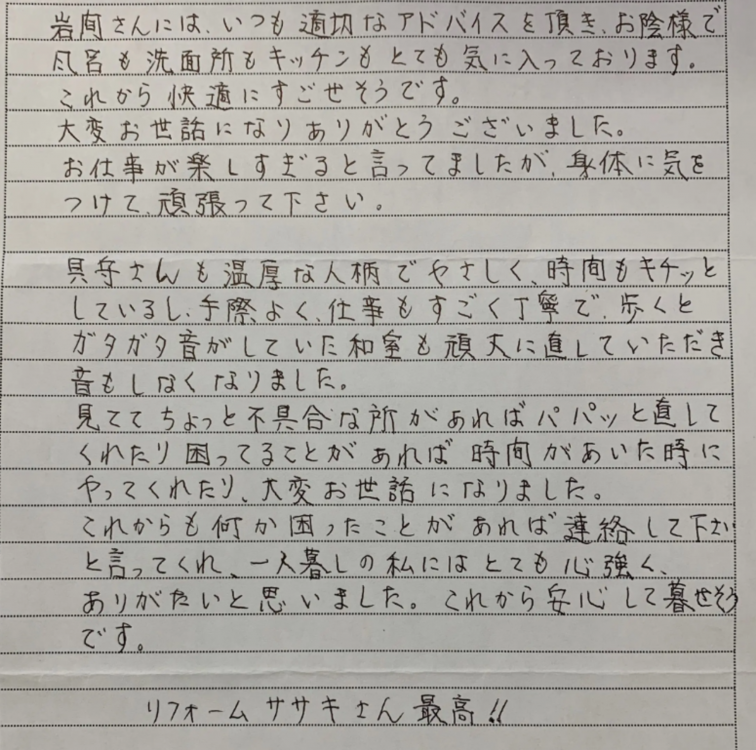 岩間さんには、いつも適切なアドバイスを頂き、お陰様で
風呂も洗面所もキッチンもとても気に入っております。
これから快適にすごせそうです。
大変お世話になりありがとうございました。
お仕事が楽しすぎると言ってましたが、身体に気を
つけて、頑張って下さい。
さんも温厚な人柄でやさしく、時間もキチッと
しているし、手際よく、仕事もすごく丁寧で、歩くと
ガタガタ音がしていた和室も頑丈に直していただき
音もしなくなりました。
見ててちょっと不具合な所があればパパッと直して
くれたり困ってることがあれば時間があいた時に
やってくれたり、大変お世話になりました。
これからも何か困ったことがあれば連絡して下さい
と言ってくれ、一人暮しの私にはとても心強く、
ありがたいと思いました。これから安心して暮せそう
です。
リフォームササキさん最高!!